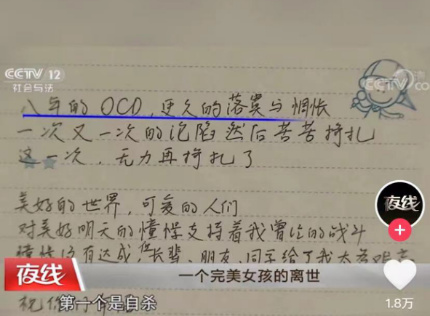 CCTV 12
社会与法
CCTV
八年的OCD,更久的落寞与惆怅
一次又一次的沦陷然后苦苦挣扎
这一次,无力再挣扎了
美好的世界,可爱的人们
对美好明天的憧憬支持着我曾经的战斗
长辈、朋友、同学给了我太多
夜线
夜线
一个完美女孩的离世
第一个是自杀
1.8万